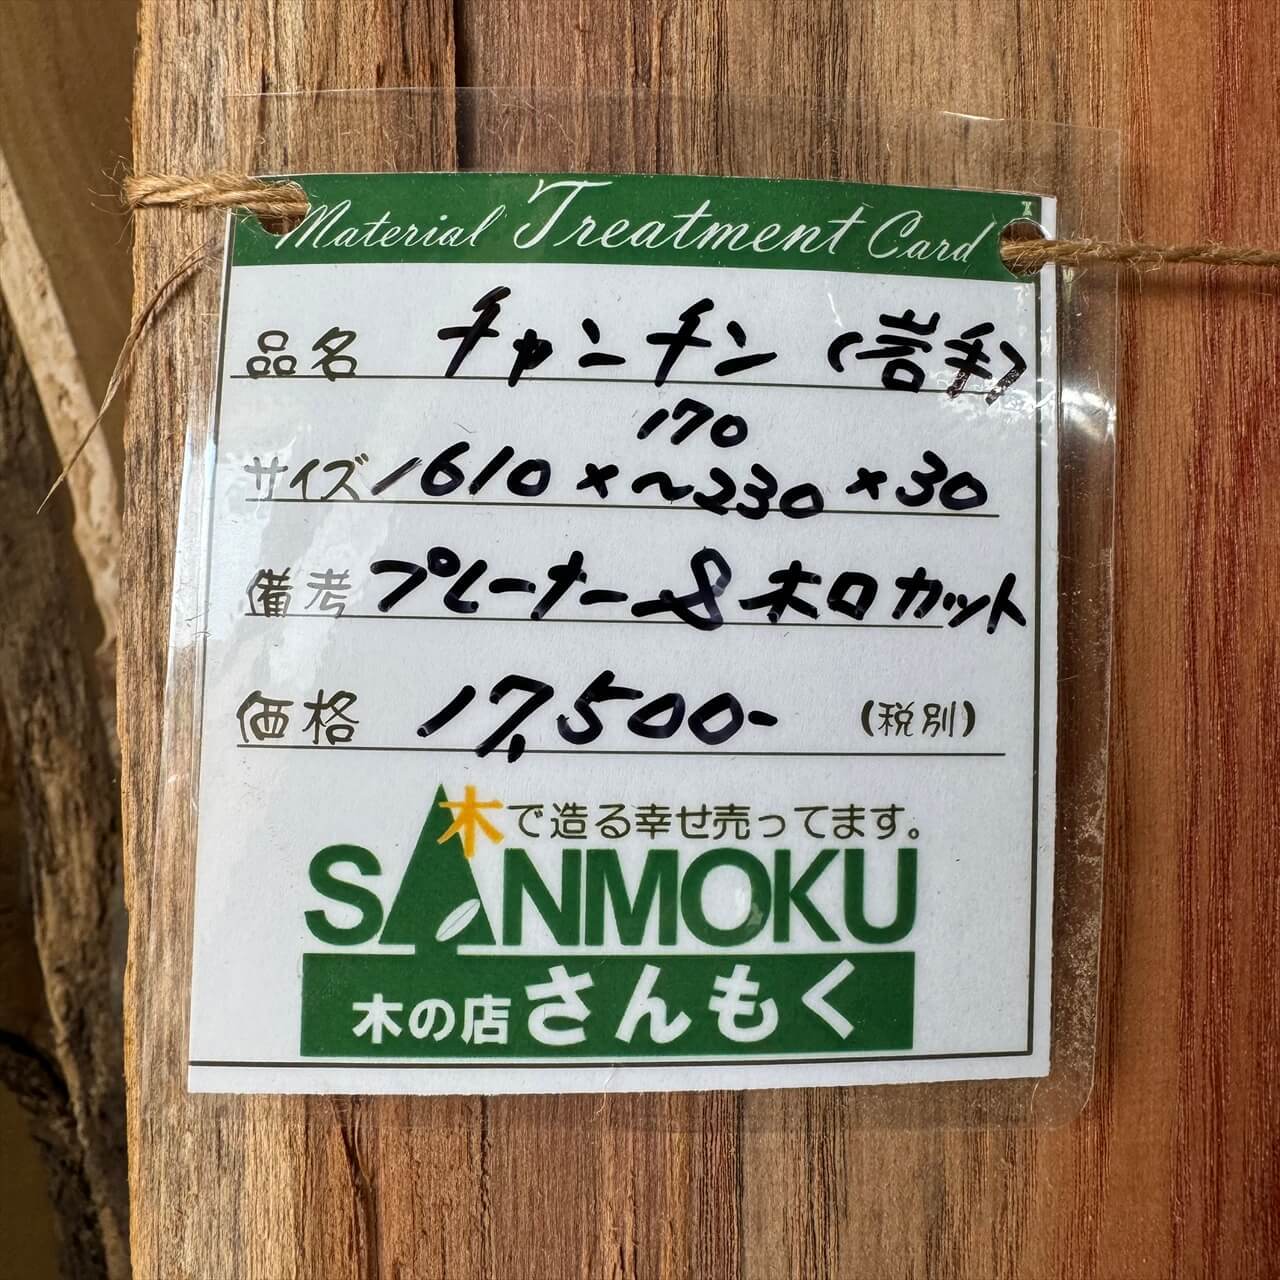 Material Treatment Card
品名 チャンチン (岩手)
170
サイズ 1610×~230×30
備考 プレーナー&木口カット
価格 17,500- (税別)
木で造る幸せ売ってます。
SANMOKU
木の店さんもく